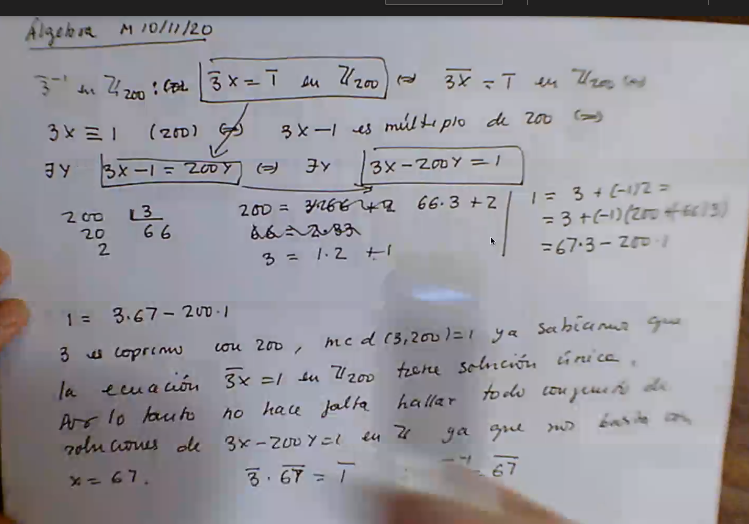 Álgebra M 10/11/20
3̄⁻¹ en ℤ₂₀₀ : 3̄ x = 1̄ en ℤ₂₀₀ ⇔ 3̄x̄ = 1̄ en ℤ₂₀₀ ⇔
3x ≡ 1 (200) ⇔ 3x-1 es múltiplo de 200 ⇔
∃y 3x-1 = 200y ⇔ ∃y 3x-200y = 1
200 |3
20 66
2
200 = 66·3 + 2
3 = 1·2 + 1
1 = 3 + (-1)2 =
= 3 + (-1)(200 + 66·3)
= 67·3 - 200·1
1 = 3·67 - 200·1
3 es coprimo con 200, mcd (3,200)=1 ya sabíamos que
la ecuación 3̄x = 1 en ℤ₂₀₀ tiene solución única.
Por lo tanto no hace falta hallar todo conjunto de
soluciones de 3x-200y=1 en ℤ ya que nos basta con
x = 67. 3̄ · 6̄7̄ = 1̄ ⁻¹ 6̄7̄